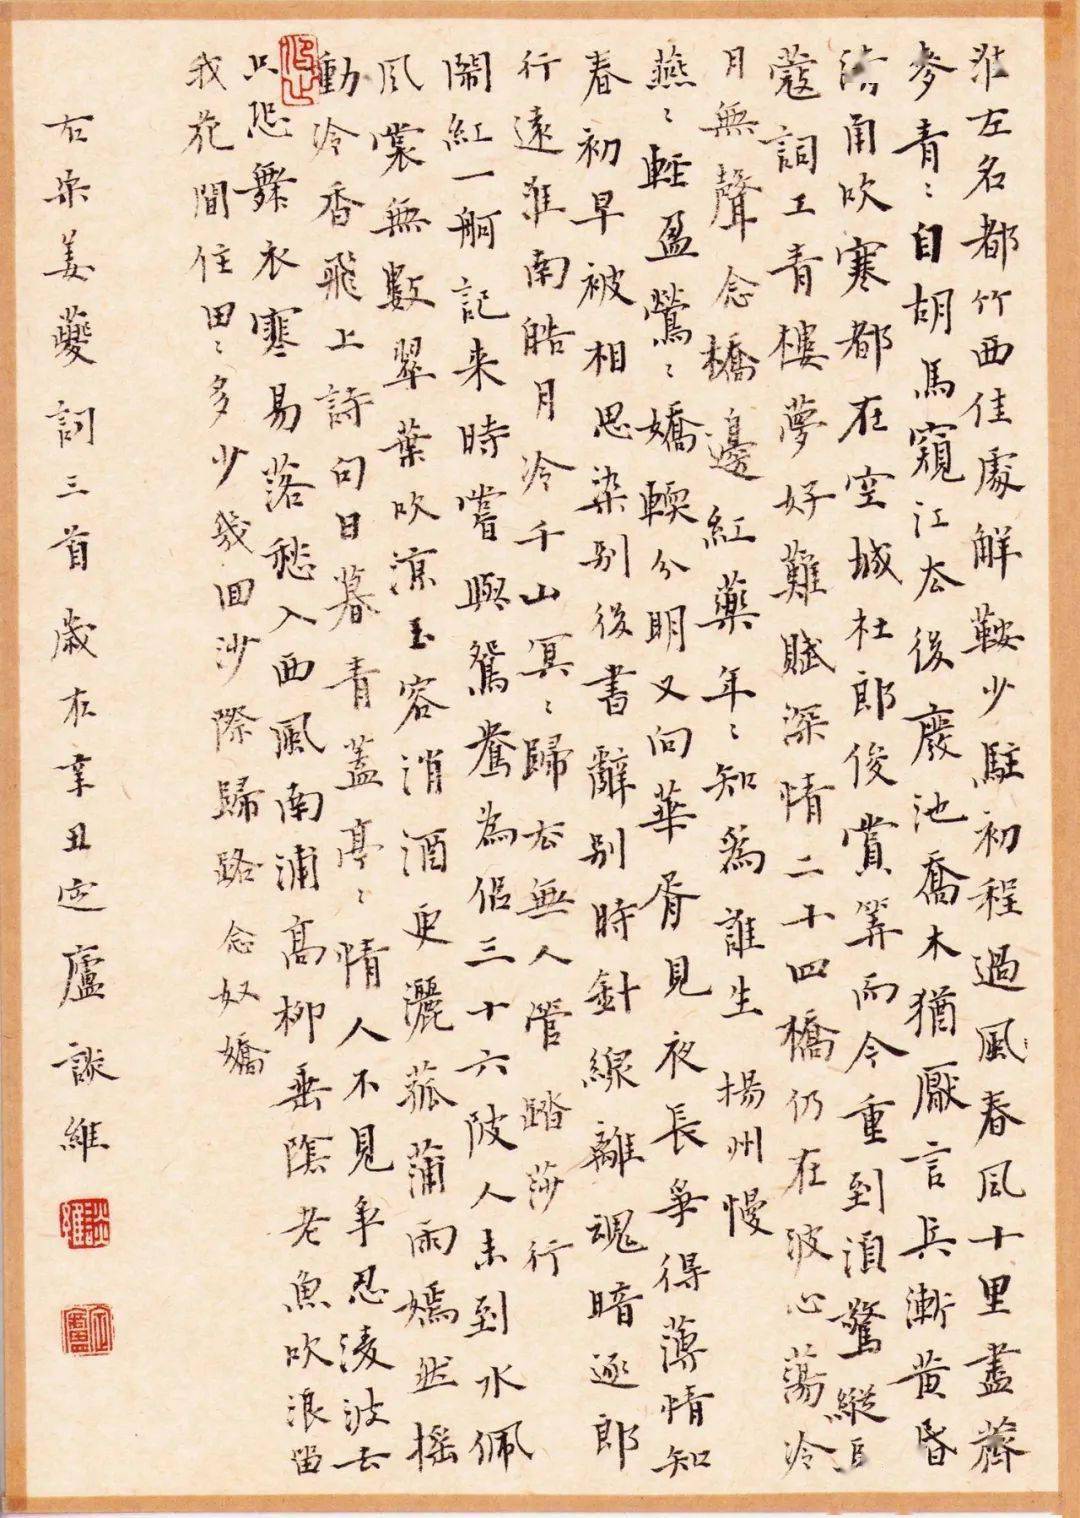 淮左名都竹西佳處解鞍少駐初程過風春風十里盡薺
麥青〻自胡馬窺江去後廢池喬木猶厭言兵漸黃昏
清角吹寒都在空城杜郎俊賞算而今重到須驚縱豆
蔻詞工青樓夢好難賦深情二十四橋仍在波心蕩冷
月無聲念橋邊紅藥年〻知為誰生 揚州慢
燕〻輕盈鶯〻嬌輭分明又向華胥見夜長爭得薄情知
春初早被相思染別後書辭別時針線離魂暗逐郎
行遠淮南皓月冷千山冥〻歸去無人管 踏莎行
鬧紅一舸記来時嘗與鴛鴦為侶三十六陂人未到水佩
風裳無數翠葉吹涼玉容消酒更灑菰蒲雨嫣然搖
動冷香飛上詩句日暮青蓋亭〻情人不見爭忍淩波去
只恐舞衣寒易落愁入西風南浦高柳垂陰老魚吹浪留
我花間住田〻多少幾回沙際歸路 念奴嬌
右宋姜夔詞三首歲在辛丑定廬談維
談維
定廬